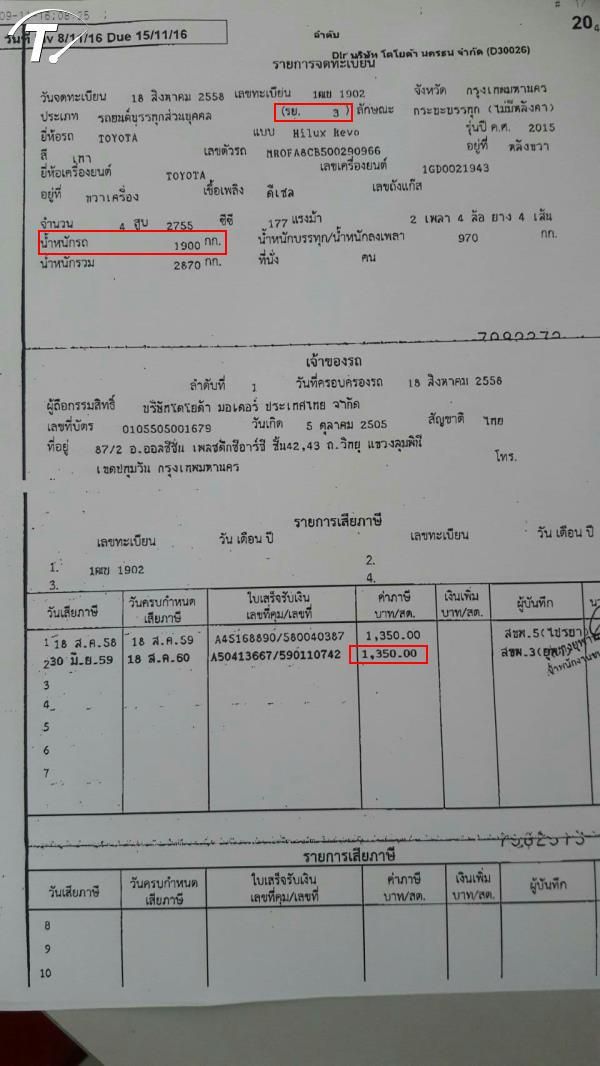 09-11 16:08:25
# 17
T
วันที่ Inv 8/11/16 Due 15/11/16
ลำดับ
20
Dlr บริษัท โตโยต้า นครธน จำกัด (D30026)
รายการจดทะเบียน
วันจดทะเบียน 18 สิงหาคม 2558 เลขทะเบียน 1ฒฆ 1902 จังหวัด กรุงเทพมหานคร
ประเภท รถยนต์บรรทุกส่วนบุคคล (รย. 3 ) ลักษณะ กระบะบรรทุก (ไม่มีหลังคา)
ยี่ห้อรถ TOYOTA แบบ Hilux Revo รุ่นปี ค.ศ. 2015
สี เทา เลขตัวรถ MR0FA8CB500290966 อยู่ที่ หลังขวา
ยี่ห้อเครื่องยนต์ TOYOTA เลขเครื่องยนต์ 1GD0021943
อยู่ที่ ขวาเครื่อง เชื้อเพลิง ดีเซล เลขถังแก๊ส
จำนวน 4 สูบ 2755 ซีซี 177 แรงม้า 2 เพลา 4 ล้อ ยาง 4 เส้น
น้ำหนักรถ 1900 กก. น้ำหนักบรรทุก/น้ำหนักลงเพลา 970 กก.
น้ำหนักรวม 2870 กก. ที่นั่ง คน
เจ้าของรถ
ลำดับที่ 1 วันที่ครอบครองรถ 18 สิงหาคม 2558
ผู้ถือกรรมสิทธิ์ บริษัทโตโยต้า มอเตอร์ ประเทศไทย จำกัด
เลขที่บัตร 0105505001679 วันเกิด 5 ตุลาคม 2505 สัญชาติ ไทย
ที่อยู่ 87/2 อ.ออลซีซั่น เพลสตึกซีอาร์ซี ชั้น42,43 ถ.วิทยุ แขวงลุมพินี
เขตปทุมวัน กรุงเทพมหานคร โทร.
รายการเสียภาษี
เลขทะเบียน วัน เดือน ปี เลขทะเบียน วัน เดือน ปี
1. 1ฒฆ 1902 2.
3. 4.
วันเสียภาษี วันครบกำหนดเสียภาษี ใบเสร็จรับเงิน เลขที่คุม/เลขที่ ค่าภาษี บาท/สต. เงินเพิ่ม บาท/สต. ผู้บันทึก
1 18 ส.ค.58 18 ส.ค.59 A45168890/580040387 1,350.00 สขพ.5(ไปรยา)
2 30 มิ.ย.59 18 ส.ค.60 A50413667/590110742 1,350.00
3
4
5
6
7
รายการเสียภาษี
วันเสียภาษี วันครบกำหนดเสียภาษี ใบเสร็จรับเงิน เลขที่คุม/เลขที่ ค่าภาษี บาท/สต. เงินเพิ่ม บาท/สต. ผู้บันทึก
8
9
10